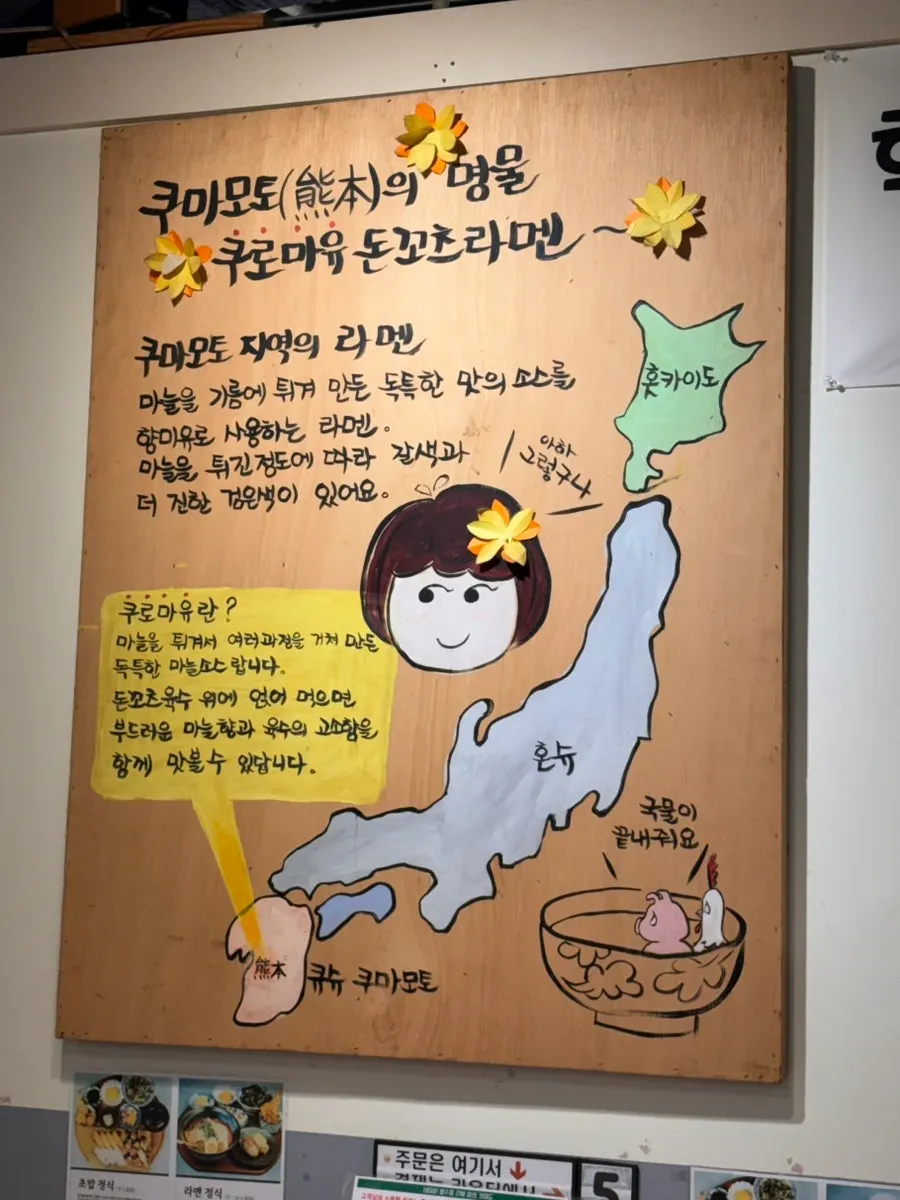 쿠마모토(熊本)의 명물
쿠로마유 돈꼬츠라멘~
쿠마모토 지역의 라멘
마늘을 기름에 튀겨 만든 독특한 맛의 소스를
향미유로 사용하는 라멘.
마늘을 튀긴정도에 따라 갈색과
더 진한 검은색이 있어요.
아하
그렇구나
홋카이도
쿠로마유란?
마늘을 튀겨서 여러과정을 거쳐 만든
독특한 마늘소스 랍니다.
돈꼬츠육수 위에 얹어 먹으면
부드러운 마늘향과 육수의 고소함을
함께 맛볼수 있답니다.
혼슈
국물이
끝내줘요
熊本
큐슈 쿠마모토
초밥 정식
라멘 정식
주문은 여기서
5